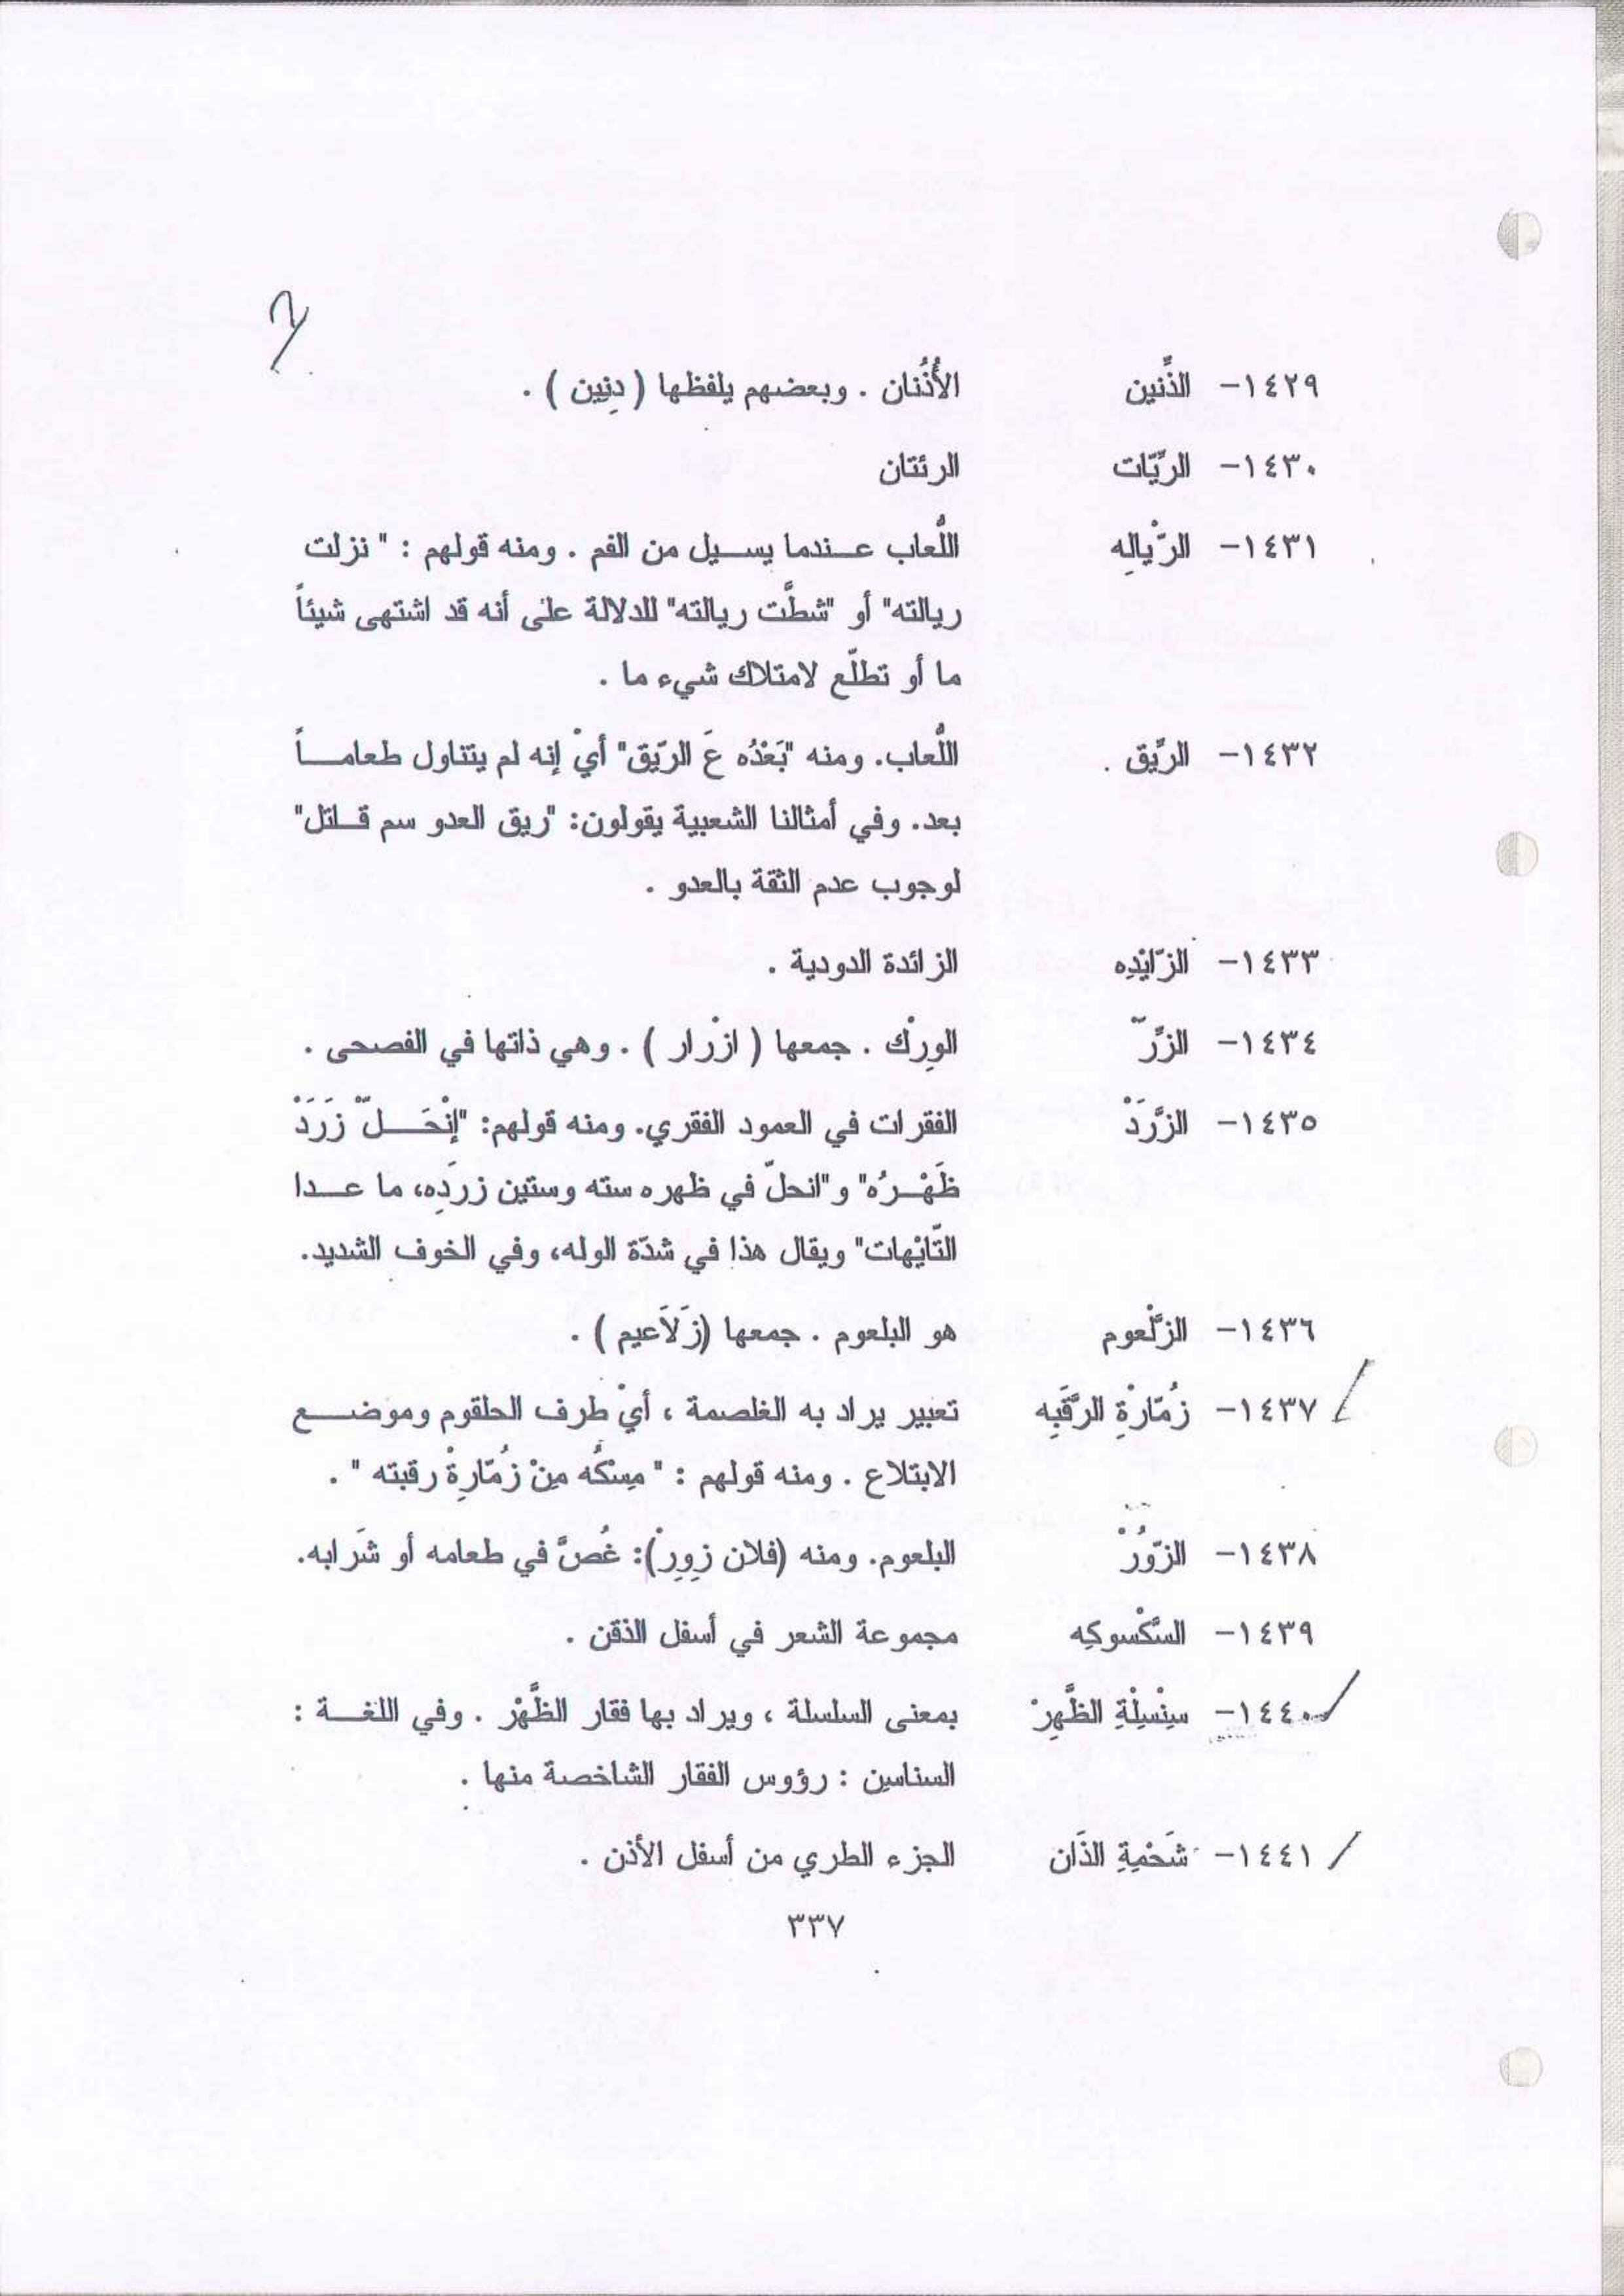 ١٤٢٩- الذِّنين الأُذُنان . وبعضهم يلفظها ( دِنِين ) .
١٤٣٠- الريّات الرئتان
١٤٣١- الرْيالِه اللُّعاب عـندما يســيل من الفم . ومنه قولهم : " نزلت
ريالته" أو "شطَّت ريالته" للدلالة على أنه قد اشتهى شيئاً
ما أو تطلّع لامتلاك شيء ما .
١٤٣٢- الرِّيق . اللُّعاب. ومنه "بَعْدُه عَ الرّيق" أيْ إنه لم يتناول طعامــاً
بعد. وفي أمثالنا الشعبية يقولون: "ريق العدو سم قــاتل"
لوجوب عدم الثقة بالعدو .
١٤٣٣- الزّايْدِه الزائدة الدودية .
١٤٣٤- الزِّرّ الوِرْك . جمعها ( ازْرار ) . وهي ذاتها في الفصحى .
١٤٣٥- الزَّرَدْ الفقرات في العمود الفقري. ومنه قولهم: "إنْحَــلّ زَرَدْ
ظَهْــرُه" و "انحلّ في ظهره سته وستين زردِه، ما عــدا
التّايْهات" ويقال هذا في شدّة الوله، وفي الخوف الشديد.
١٤٣٦- الزلْعوم هو البلعوم . جمعها (زَلاَعيم ) .
١٤٣٧- زُمّارةِ الرَّقَبِه تعبير يراد به الغلصمة ، أيْ طرف الحلقوم وموضــع
الابتلاع . ومنه قولهم : " مِسْكُه مِنْ زُمّارِةْ رقبته " .
١٤٣٨- الزّوُرْ البلعوم. ومنه (فلان زِوِرْ): غُصَّ في طعامه أو شَرابه.
١٤٣٩- السَّكْسوكِه مجموعة الشعر في أسفل الذقن .
١٤٤٠- سِنْسِلْةِ الظَّهِرْ بمعنى السلسلة ، ويراد بها فقار الظَّهْر . وفي اللغــة :
السناسن : رؤوس الفقار الشاخصة منها .
١٤٤١- شَحْمِةِ الذَان الجزء الطري من أسفل الأذن .
٣٣٧